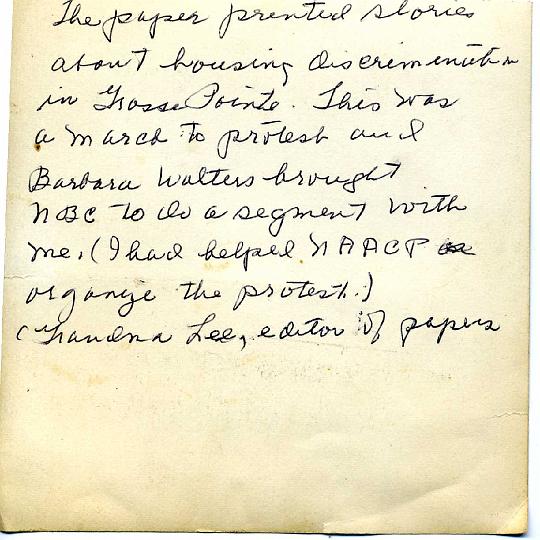 The paper printed stories
about housing discrimination
in Grosse Pointe. This was
a march to protest and
Barbara Walters brought
NBC to do a segment with
me. (I had helped NAACP
organize the protest.)
Lee, editor of papers